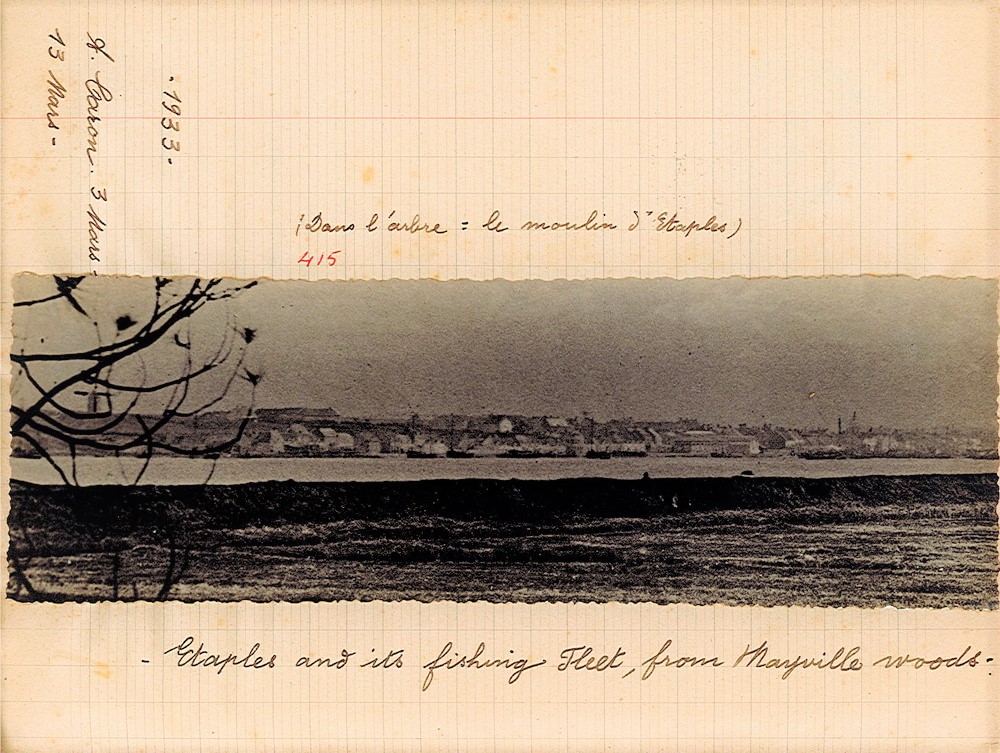 13 Mars -
A. Caron. 3 Mars -
. 1933.
(Dans l'arbre = le moulin d'Etaples)
415
- Etaples and its fishing Fleet, from Mayville woods -